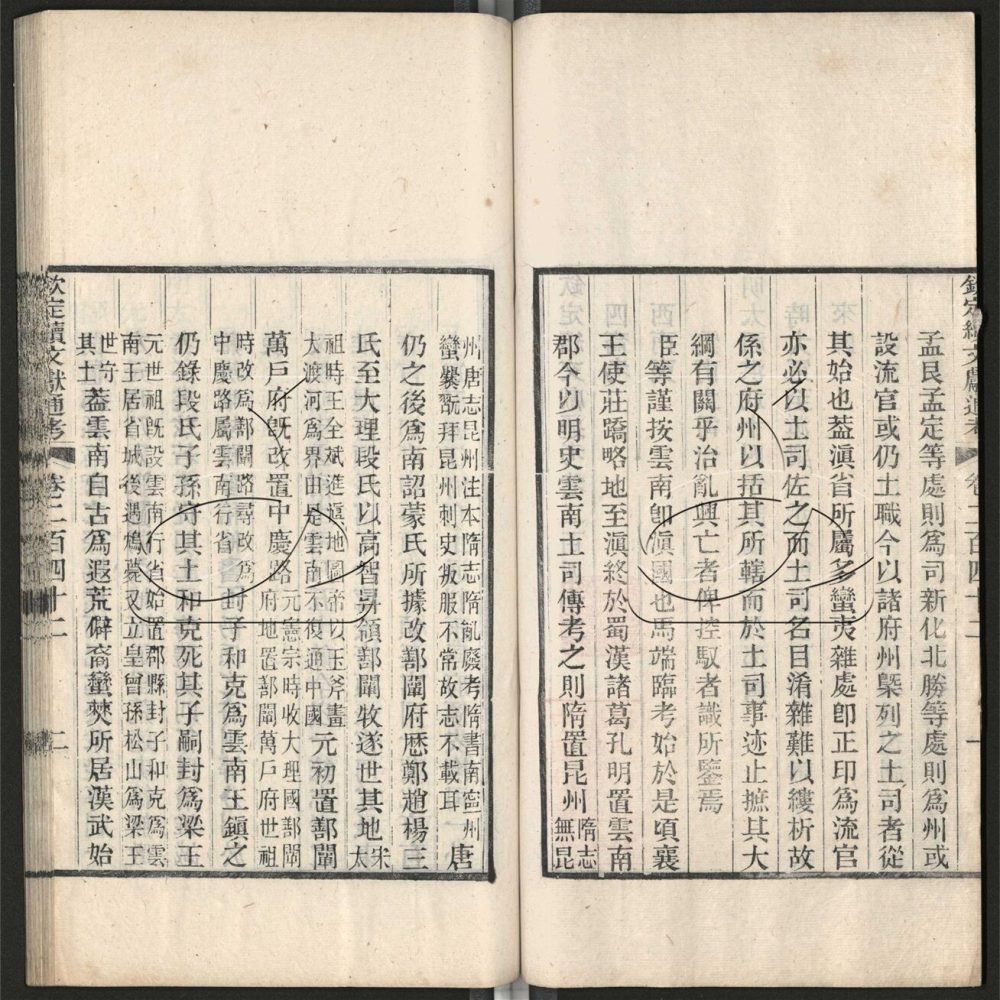 孟艮孟定等處則爲司新化北勝等處則爲州或
設流官或仍土職今以諸府州槩列之土司者從
其始也葢滇省所屬多蠻夷雜處卽正印爲流官
亦必以土司佐之而土司名目淆雜難以縷析故
係之府州以括其所轄而於土司事迹止摭其大
綱有關乎治亂興亡者俾控馭者識所鑒焉
臣等謹按雲南卽滇國也馬端臨考始於是頃襄
王使莊蹻略地至滇終於蜀漢諸葛孔明置雲南
郡今以明史雲南土司傳考之則隋置昆州隋志無昆
欽定續文獻通考 卷二百四十二 一
州唐志昆州注本隋志隋亂廢考隋書南寧州蠻爨翫拜昆州刺史叛服不常故志不載耳唐
仍之後爲南詔蒙氏所據改鄯闡府厯鄭趙楊三
氏至大理段氏以高智昇領鄯闡牧遂世其地宋太
祖時王全斌進滇地圖帝以玉斧畫大渡河爲界由是雲南不復通中國元初置鄯闡
萬戸府旣改置中慶路元憲宗時收大理國鄯闡府地置鄯闡萬戸府世祖
時改爲鄯闡路尋改爲中慶路屬雲南行省封子和克爲雲南王鎭之
仍錄段氏子孫守其土和克死其子嗣封爲梁王
元世祖旣設雲南行省始置郡縣封子和克爲雲南王居省城後遇鴆薨又立皇曾孫松山爲梁王
世守其土葢雲南自古爲遐荒僻裔蠻僰所居漢武始
欽定續文獻通考 卷二百四十二 二